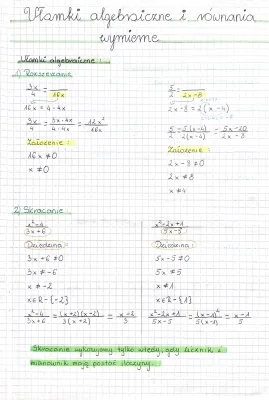 Ułamki algebraiczne i równania
wymierne
Ułamki algebraiczne:
1) Rozszerzanie
3x/4 = /16x
16x = 4 · 4x
3x/4 = 3x · 4x/4 · 4x = 12x²/16x
Założenie:
16x ≠ 0
x ≠ 0
5/2 = /2x-8
2x-8 = 2(x-4)
5/2 = 5(x-4)/2(x-4) = 5x-20/2x-8
Założenie:
2x-8 ≠ 0
2x ≠ 8
x ≠ 4
2) Skracanie:
x²-4/3x+6
Dziedzina:
3x+6 ≠ 0
3x ≠ -6
x ≠ -2
x∈R-{-2}
x²-4/3x+6 = (x+2)(x-2)/3(x+2) = x-2/3
x²-2x+1/5x-5
Dziedzina:
5x-5 ≠ 0
5x ≠ 5
x ≠ 1
x∈R-{1}
x²-2x+1/5x-5 = (x-1)²/5(x-1) = x-1/5
Skracanie wykonujemy tylko wtedy, gdy licznik i
mianownik mają postać iloczynu.